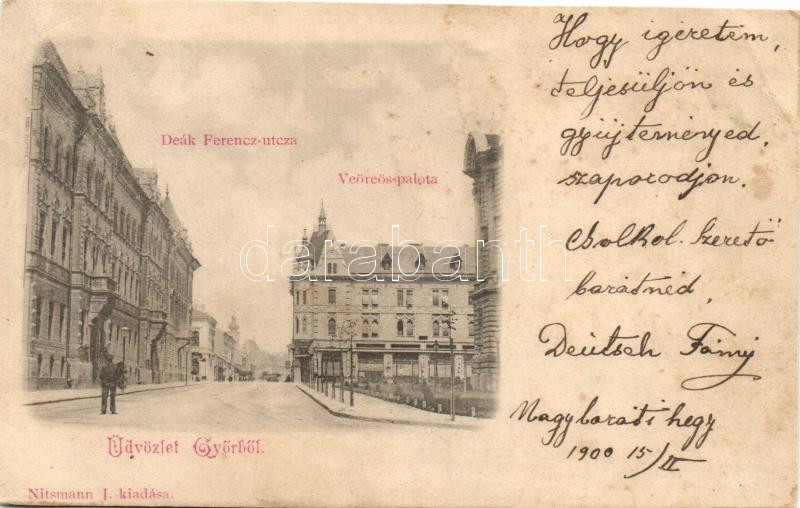 Deák Ferencz-utcza
Veöreös-palota
Üdvözlet Győrből.
Nitsmann J. kiadása.
Hogy igéretem,
teljesüljön és
gyüjteményed,
szaporodjon.
Csolkol. Szerető
barátnéd,
Deutsch Fány
Nagybaráti hegy
1900 15/II
darabanth